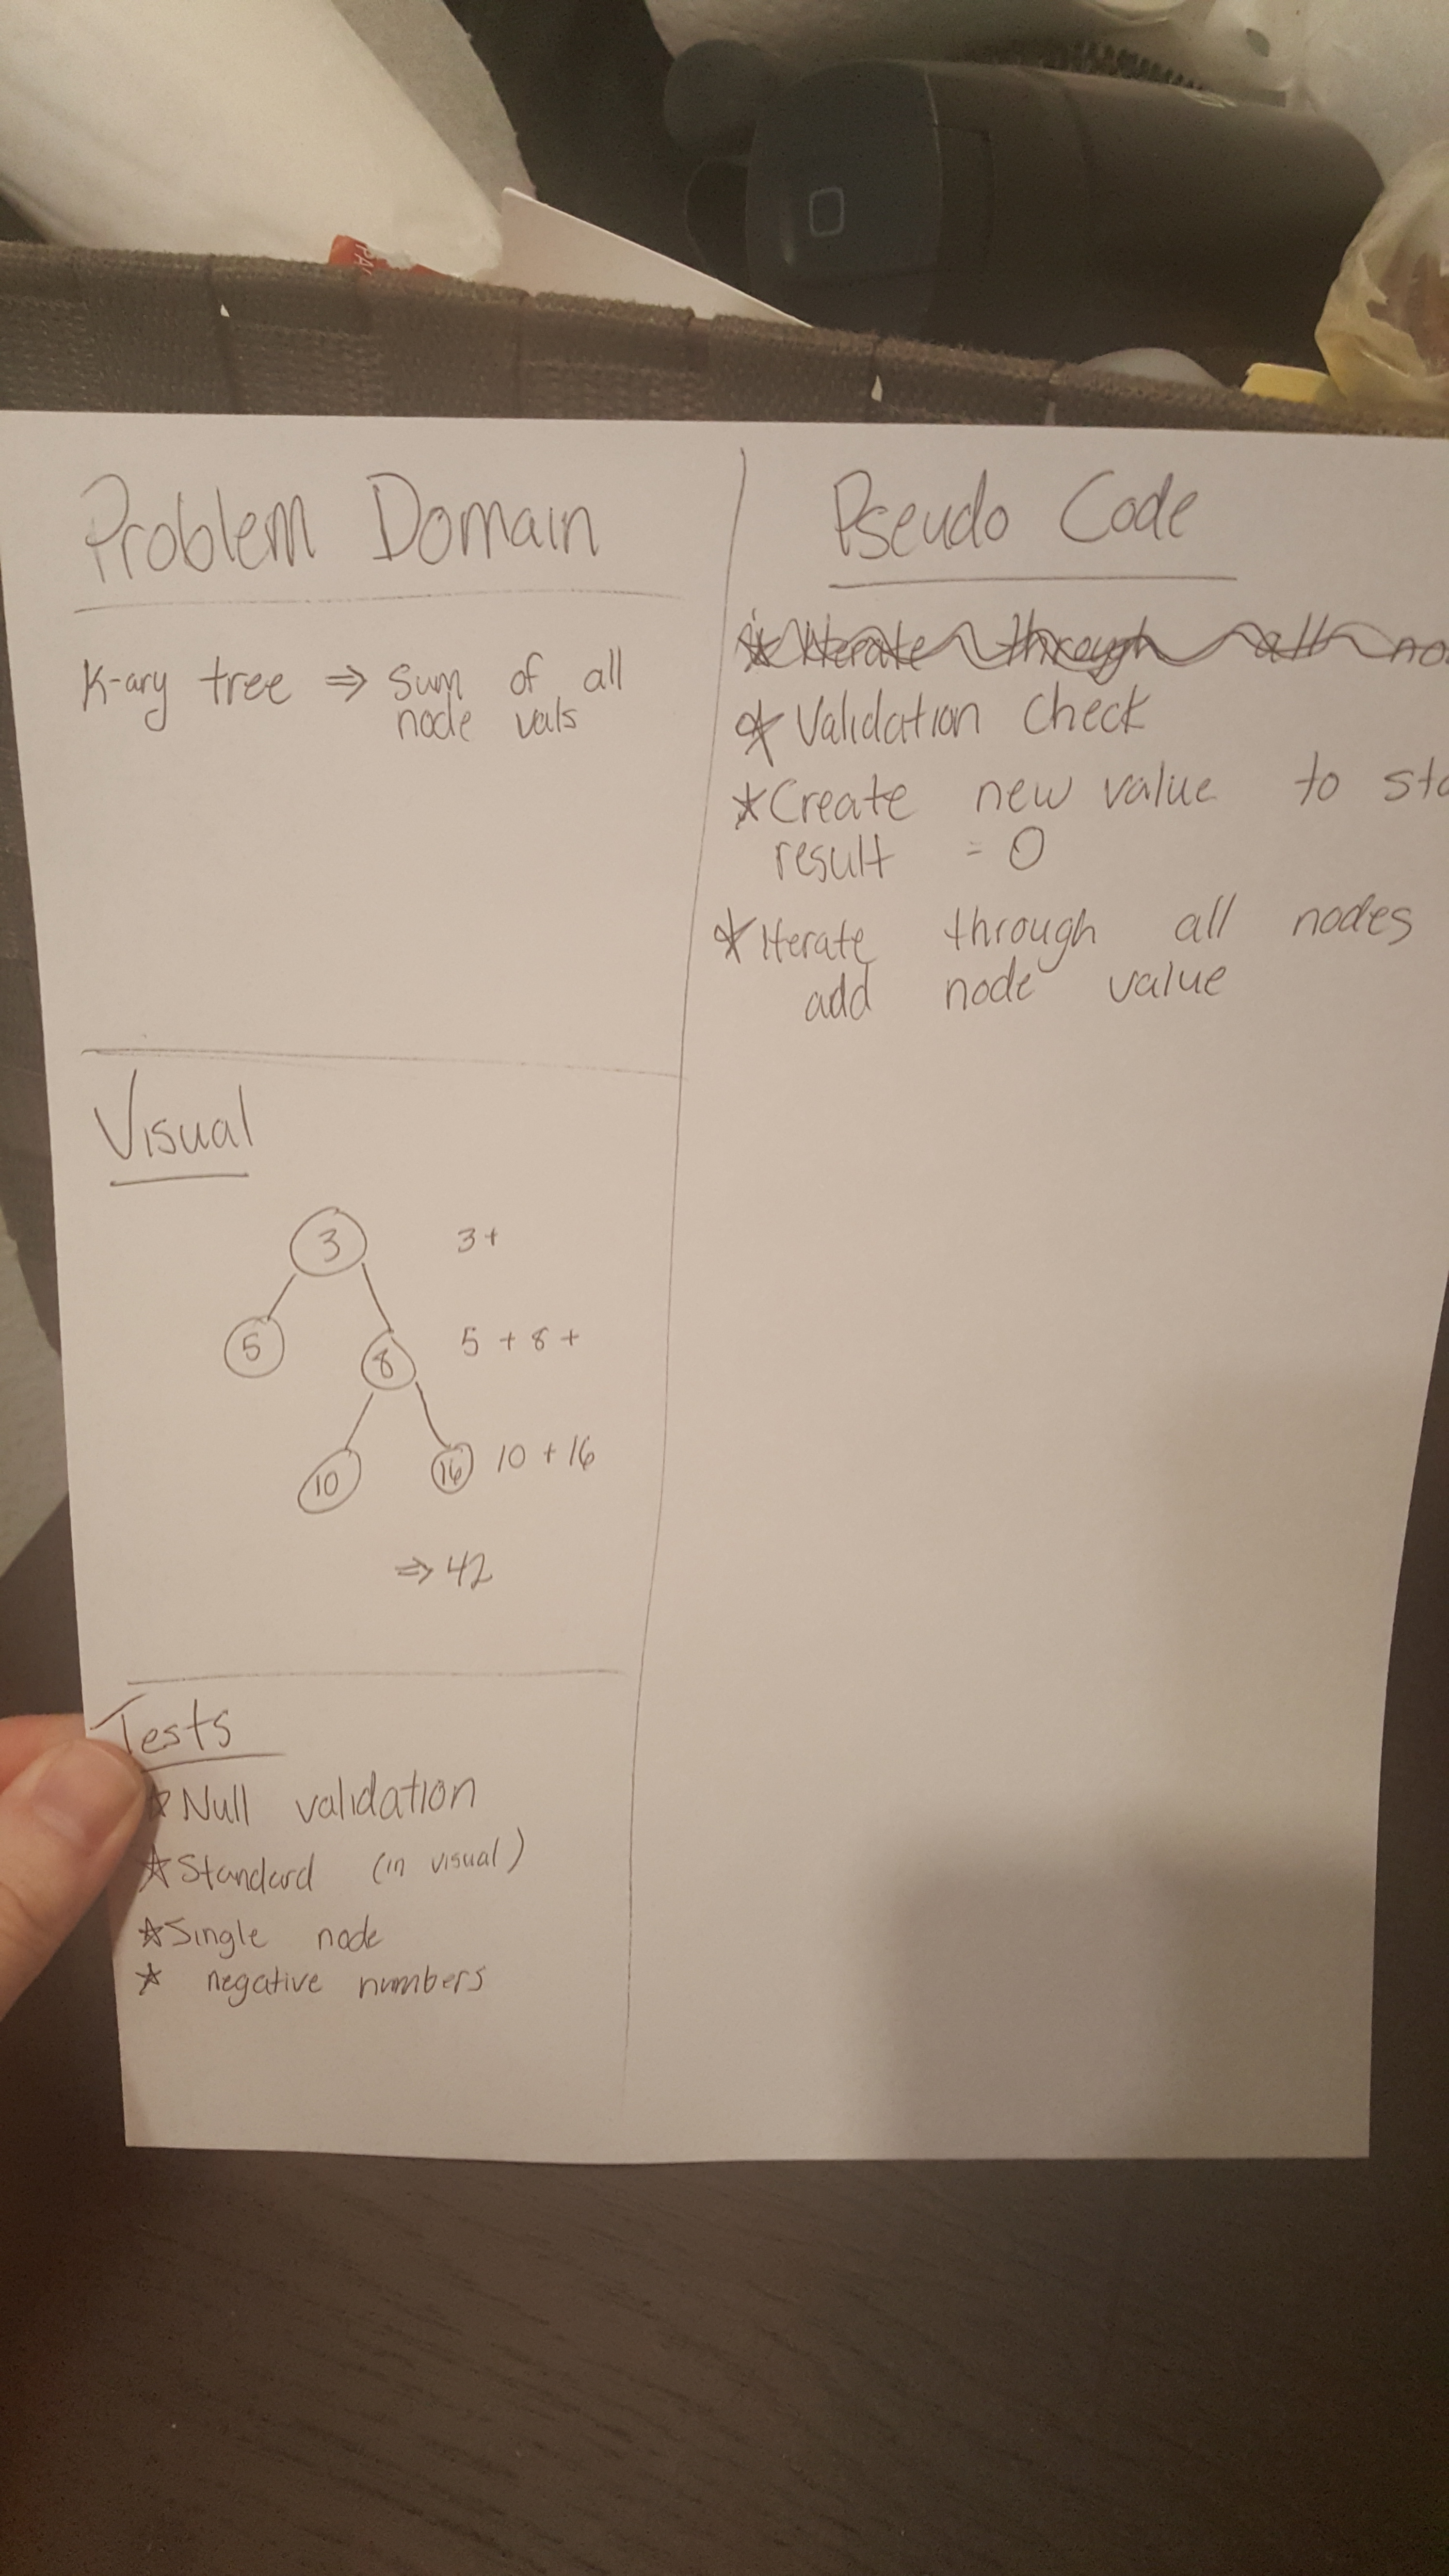 Problem Domain
K-ary tree ⇒ sum of all
node vals
Visual
3 3+
5 8 5 + 8 +
10 16 10 + 16
⇒ 42
Tests
* Null validation
* Standard (in visual)
* Single node
* negative numbers
Pseudo Code
* Iterate through all no
* Validation Check
* Create new value to sto
result = 0
* Iterate through all nodes
add node value